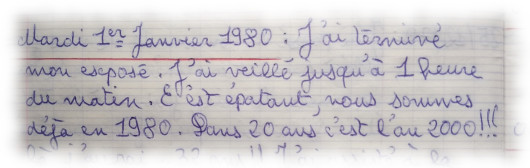 Mardi 1er Janvier 1980 : J'ai terminé
mon exposé. J'ai veillé jusqu'à 1 heure
du matin. C'est épatant, nous sommes
déjà en 1980. Dans 20 ans c'est l'an 2000!!!